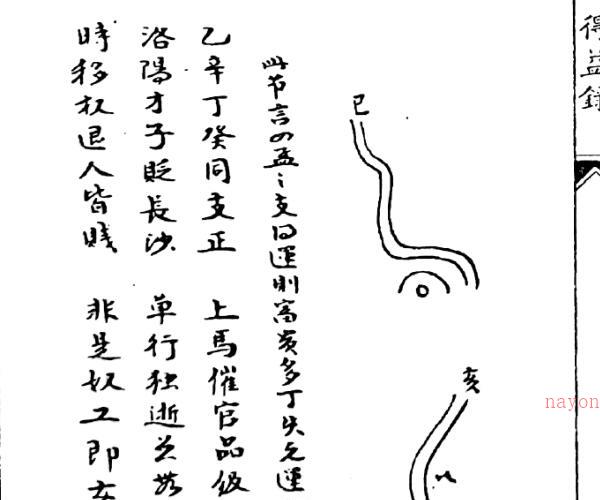 得益錄
巳
亥
此节言四孟之支同運則富貴多丁失元運
乙辛丁癸同支正 上馬催官品級
洛陽才子貶長沙 单行独逝
時移权退人皆賤 非是奴工即
nayon